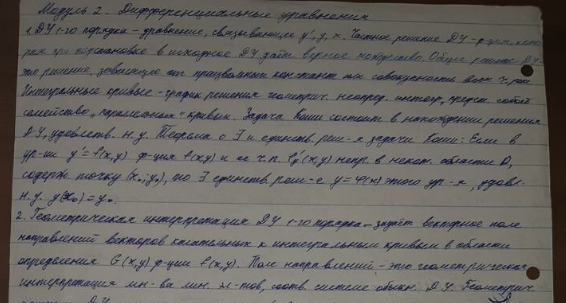 Модуль 2. Дифференциальные уравнения
1. ДУ 1-го порядка – уравнение, связывающее y', y, x. Частное решение ДУ – ф-ция,
при подстановке в исходное ДУ даёт верное тождество. Общее
решение, зависящее от произвольн. константы совокупность всех ч. реш.
Интегральные кривые – график решения геометрич. неопред. интегр., предст. собой
семейство "параллельных" кривых. Задача Коши состоит в нахождении решения
ДУ, удовлетв. н.у. Теорема о ∃ и единств. реш-я задачи Коши: Если в
ур-ии y' = f(x,y) ф-ция f(x,y) и ее ч.п. f'y (x,y) непр. в некот. области D,
содерж. точку (x₀; y₀), то ∃ единств. реш-е y = φ(x) этого ур-я, удовл.
н.у. y(x₀) = y₀.
2. Геометрическая интерпретация ДУ 1-го порядка – задаёт векторное поле
направлений векторов касательных к интегральным кривым в области
определения G(x,y) ф-ции f(x,y). Поле направлений – это геометрическая
интерпретация мн-ва лин. эл-тов, соотв. системе обыкн. ДУ. Геометрич.